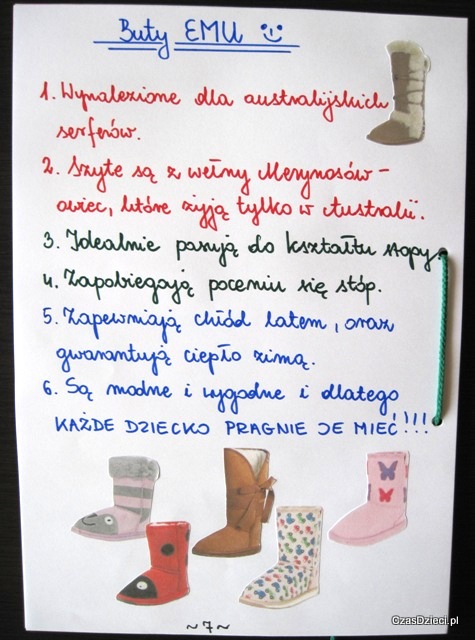 Buty EMU
1. Wynalezione dla australijskich
serferów.
2. Szyte są z wełny Merynosów -
owiec, które żyją tylko w Australii.
3. Idealnie pasują do kształtu stopy.
4. Zapobiegają poceniu się stóp.
5. Zapewniają chłód latem, oraz
gwarantują ciepło zimą.
6. Są modne i wygodne i dlatego
KAŻDE DZIECKO PRAGNIE JE MIEĆ!!!!
~7~
CzasDzieci.pl